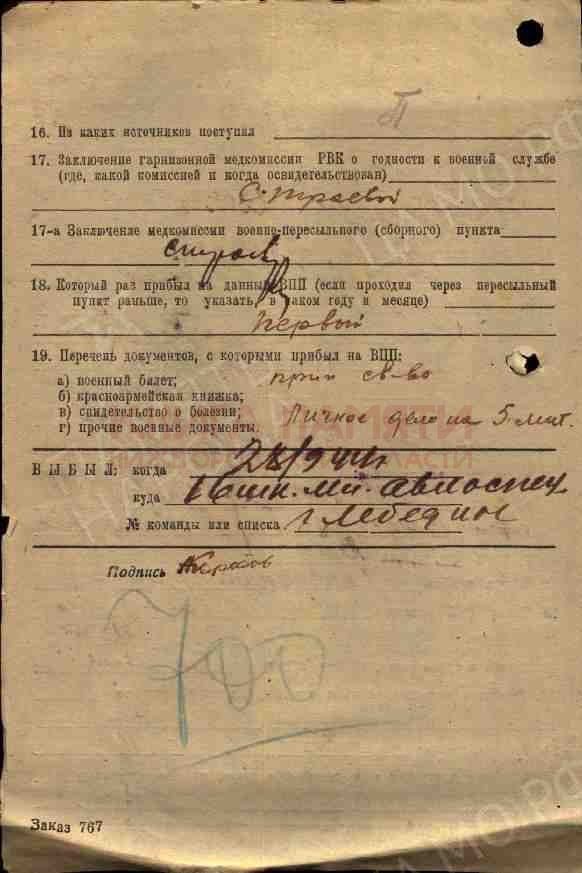 П
16. Из каких источников поступил
17. Заключение гарнизонной медкомиссии РВК о годности к военной службе
(где, какой комиссией и когда освидетельствован)
Строевой
17-а Заключение медкомиссии военно-пересыльного (сборного) пункта
строев
18. Который раз прибыл на данный ВПП (если проходил через пересыльный
пункт раньше, то указать, в каком году и месяце)
первый
19. Перечень документов, с которыми прибыл на ВПП:
а) военный билет; прип св-во
б) красноармейская книжка;
в) свидетельство о болезни;
г) прочие военные документы. Личное дело на 5 лист.
ВЫБЫЛ: когда 28/9 44г
куда 16 шк. мл. авиоспец
№ команды или списка г Лебедин
Подпись
700
Заказ 767